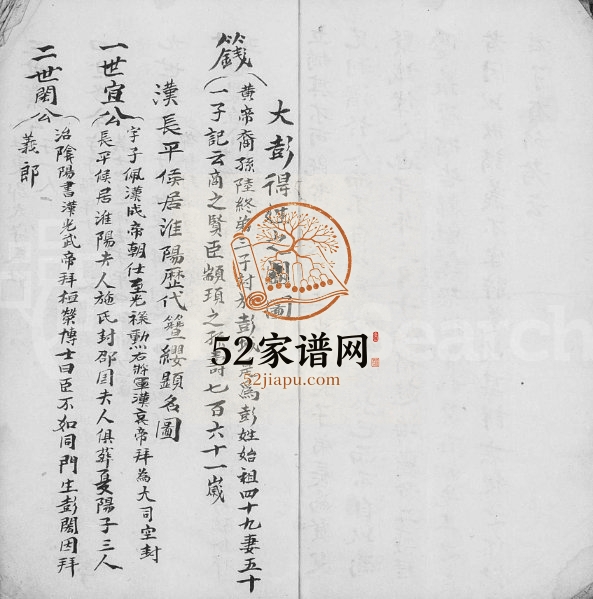 大彭得姓之圖
籛
黃帝裔孫陸終第三子封於彭城為彭姓始祖四十九妻五十
一子記云商之賢臣顓頊之孫壽七百六十一歲
漢長平侯居淮陽歷代簪纓題名圖
一世宣公
字子佩漢成帝朝仕至光祿勲右將軍漢哀帝拜為大司空封
長平侯居淮陽夫人施氏封郡國夫人俱葬夏陽子三人
二世閎公
治陰陽書漢光武帝拜桓榮博士曰臣不如同門生彭閎因拜
義郎
52家谱网
52jiapu.com